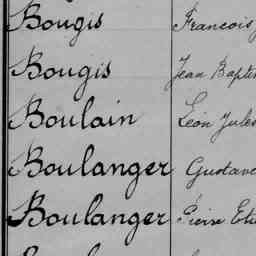 Bougis Francois
Bougis Jean
Boulain Léon Jules
Boulanger Gustave
Boulanger Pierre